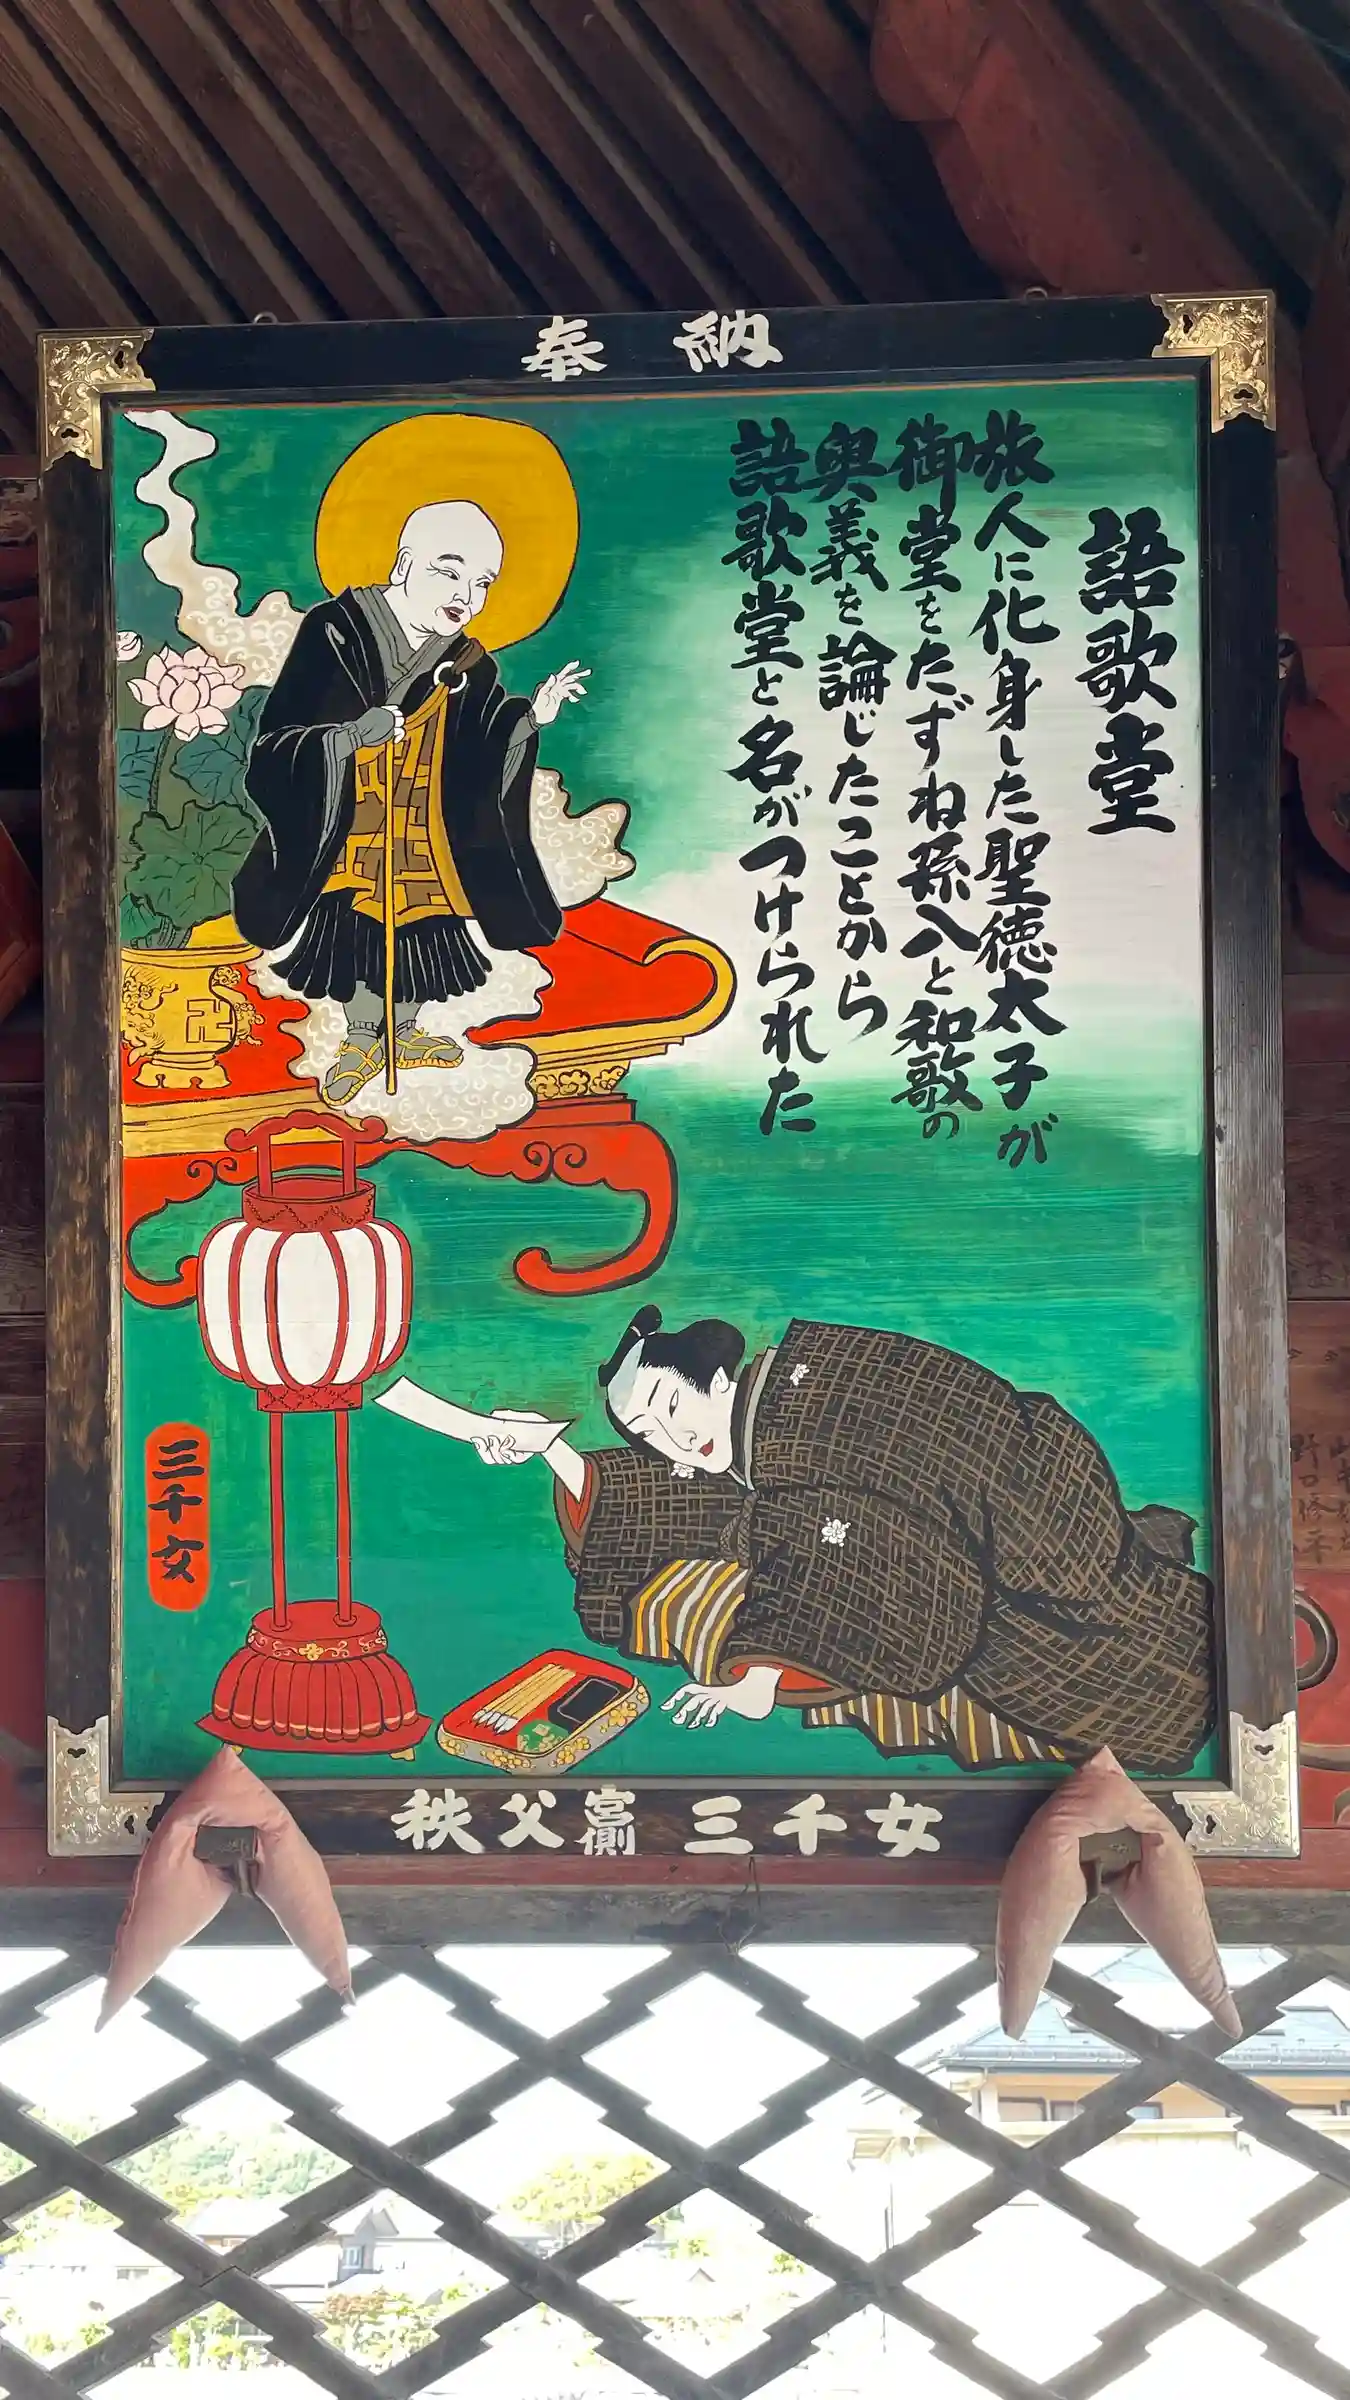 奉納
語歌堂
旅人に化身した聖徳太子が
御堂をたずね孫八と和歌の
奥義を論じたことから
語歌堂と名がつけられた
三千女
秩父宮側 三千女